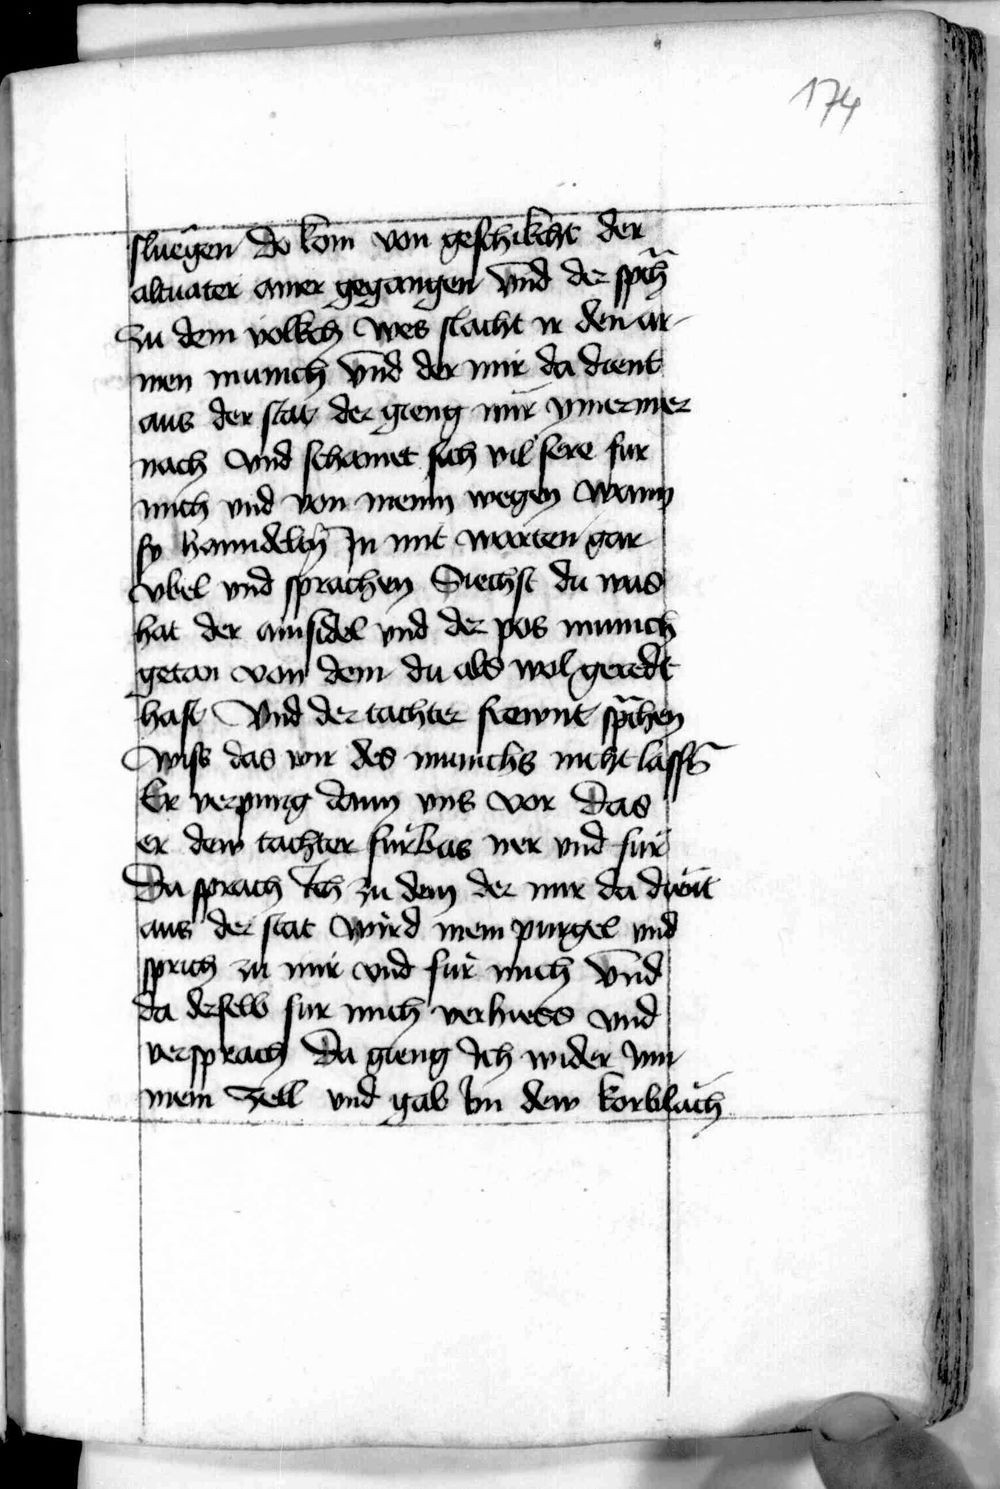 174
sluegen Do kom von geschikcht der
altuater ainer gegangen Vnd der sprach
zu dem volkch wes slacht ir den ar-
men munich Vnd der mir da dient
aus der stat der gieng mir ymermer
nach Vnd schamet sich vil sere fur
mich vnd von meinn wegen wann
sy hanndelten Jn mit worten gar
vbel vnd sprachen Siechst du was
hat der ainsidel vnd der pos munich
getan von dem du als wol geredt
hast Vnd der tachter frewnt sprachen
wiss das wir des munichs nicht lassen
Er verpurg dann vns vor Das
er dew tachter furbas ner vnd fur
Da sprach Ich zu dem der mir da dient
aus der stat wird mein purgel vnd
sprich zu mir vnd fur mich Vnd
da derselb fur mich verhiess vnd
versprach Da gieng Ich wider Inn
mein zell vnd gab Im dew korblach